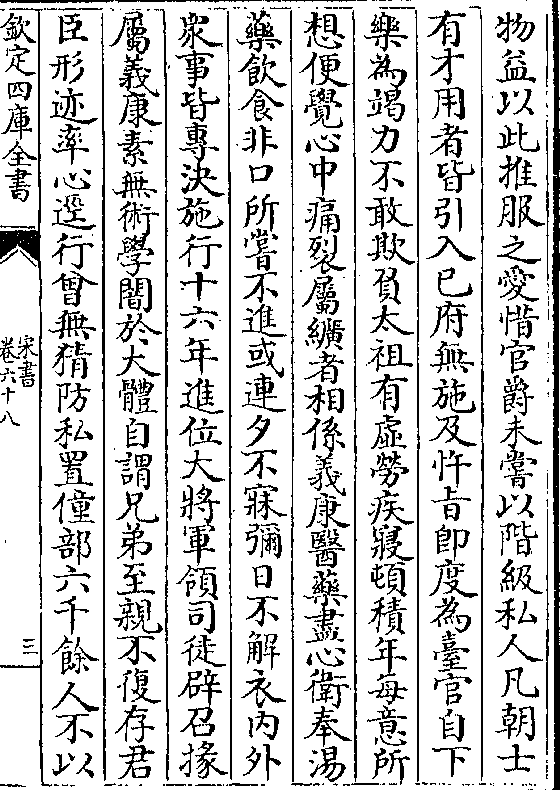 物益以此推服之愛惜官爵未嘗以階級私人凡朝士
有才用者皆引入己府無施及忤旨即度為臺官自下
樂為竭力不敢欺負太祖有虛勞疾寢頓積年每意所
想便覺心中痛裂屬纊者相係義康醫藥盡心衛奉湯
藥飲食非口所嘗不進或連夕不寐彌日不解衣內外
衆事皆專決施行十六年進位大將軍領司徒辟召掾
屬義康素無術學闇於大體自謂兄弟至親不復存君
臣形迹率心逕行曾無猜防私置僮部六千餘人不以
欽定四庫全書
宋書
卷六十八
三